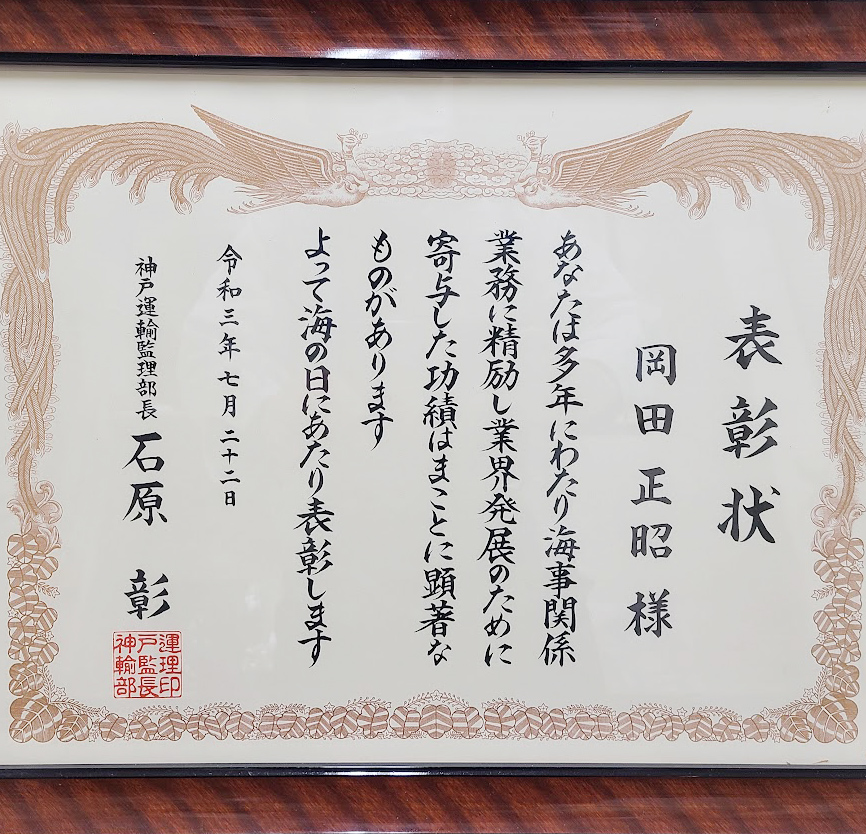 表彰状
岡田正昭様
あなたは多年にわたり海事関係
業務に精励し業界発展のために
寄与した功績はまことに顕著な
ものがあります
よって海の日にあたり表彰します
令和三年七月二十二日
神戸運輸監理部長 石原 彰
運理印
戸監長
神輸部